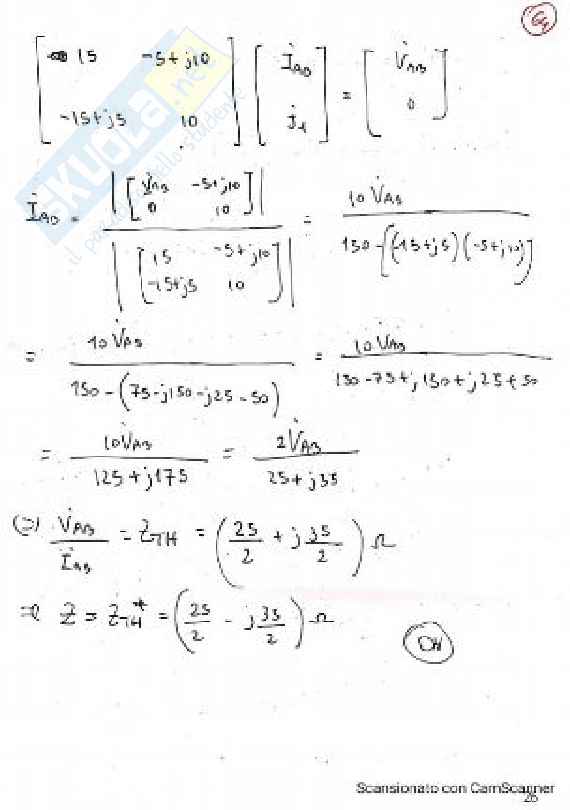 64
[ 15 -5+j10 ; -15+j5 10 ] [ İAB ; İ1 ] = [ V̇AB ; 0 ]
İAB = |[ V̇AB -5+j10 ; 0 10 ]| / |[ 15 -5+j10 ; -15+j5 10 ]| = 10 V̇AB / 150-[(-15+j5)(-5+j10)]
= 10 V̇AB / 150-(75-j150-j25-50) = 10 V̇AB / 150-75+j150+j25+50
= 10V̇AB / 125+j175 = 2V̇AB / 25+j35
(=) V̇AB / İAB = ZTH = (25/2 + j 35/2) Ω
=> Z = ZTH* = (25/2 - j 35/2) Ω
OK
SKUOLA.net
Scansionato con CamScanner
26